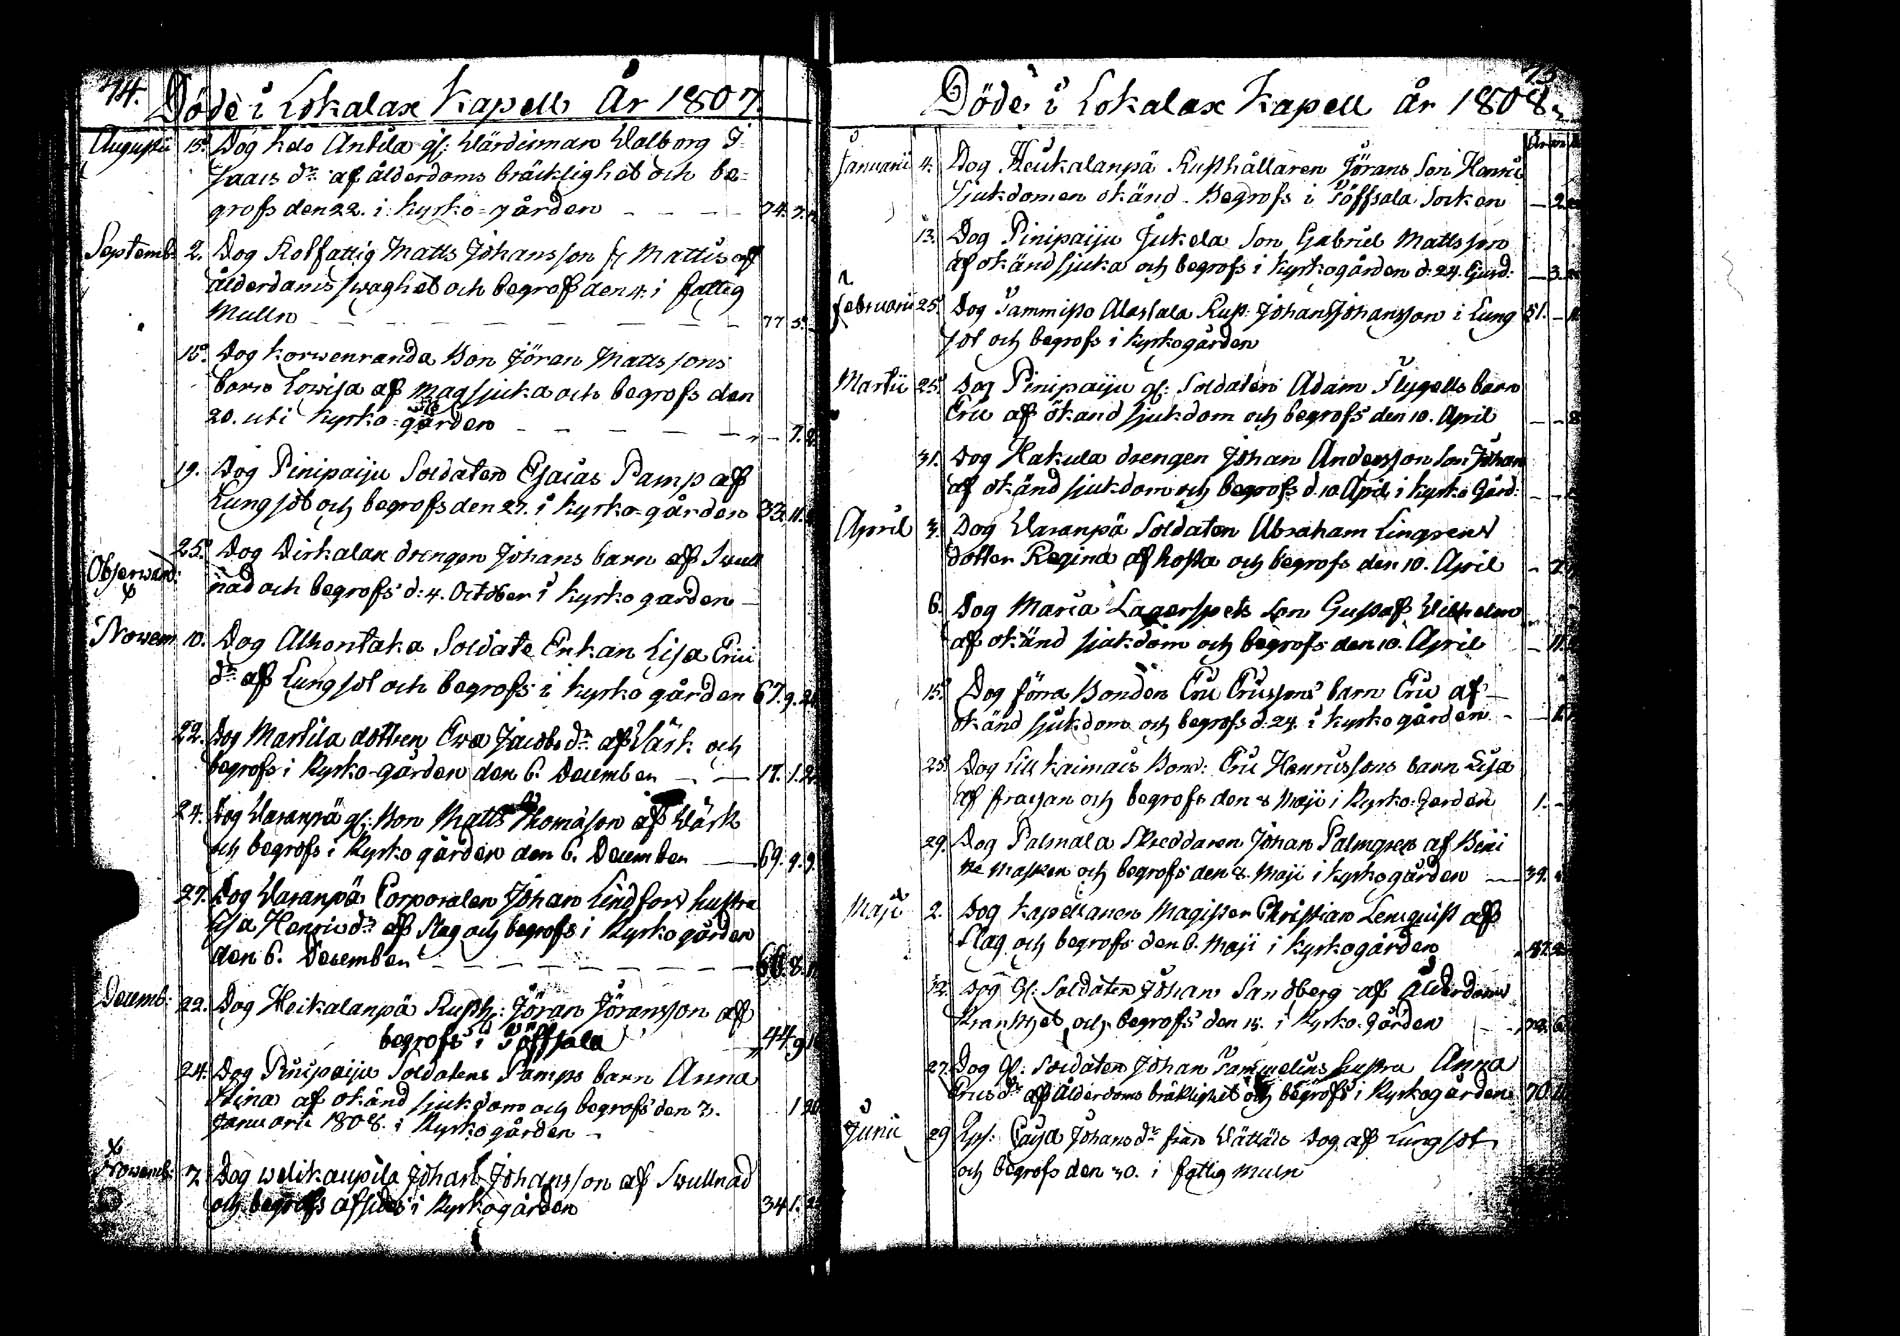 74. Döde i Lokalax Kapell År 1807.
Augusti 15. Dog Kelo Antila gl: Värdinnan Walborg I-
saacs dr. af ålderdoms bräcklighet och be-
grofs den 22. i kyrko-gården — — — 74. 7.
Septemb: 2. Dog Rotfattig Matts Johansson fr Mattis af
ålderdoms swaghet och begrofs den 4. i fattig
Mulln — — — — — — — 77 5.
15. Dog Korwenranda Bon Jöran Mattssons
barn Lowisa af magsjuka och begrofs den
20. uti kyrko-gården — — — — — 7.
19. Dog Pinipaiju Soldaten Esaias Pamp af
Lungsot och begrofs den 27. i kyrko-gården 33. 11.
25. Dog Dirkalax drengen Johans barn af Swull
Observand: nad och begrofs d: 4. October i kyrko garden —
Novem 10. Dog Alhontaka Soldats Enkan Lisa Erici
dr. af Lungsot och begrofs i kyrko gården 67. 9. 2
22. Dog Martila dottren Ewa Jacobs dr. af Värk och
begrofs i kyrko-gården den 6. December — — 17. 1. 2
24. Dog Varanpä gl: Bon Matts Thomasson af Värk
och begrofs i kyrko gården den 6. December — 69. 9. 9.
27. Dog Varanpä Corporalen Johan Lindfors hustru
Lisa Henricsdr. af slag och begrofs i kyrko gården
den 6. December — — — — — — 66. 8.
Decemb: 22. Dog Heikalanpä Rusth: Jöran Jöransson af
begrofs i Töffsala 44. 9
24. Dog Pinipaiju Soldatens Pamps barn Anna
Stina af okänd sjukdom och begrofs den 3.
Januari 1808. i kyrko gården —
Novemb: 7. Dog welikaupila Johan Johansson af Swullnad
och begrofs afsides i kyrkogården 34 1.
75
Döde i Lokalax Kapell År 1808.
Januarii 4. Dog Heikalanpä Rusthållaren Jörans Son Henric
Sjukdomen okänd. Begrofs i Töffsala Socken — 2
13. Dog Pinipaiju Jukola Son Gabriel Mattsson
af okänd sjuka och begrofs i kyrkogården d: 24. — 3
Februarii 25. Dog Tammisto Alastalo Rust: Johan Johansson i Lung 51. —
sot och begrofs i kyrkogården
Martii 25. Dog Pinipaiju gl: Soldaten Adam Flygells barn
Eric af okänd sjukdom och begrofs den 10. April — — 8
31. Dog Hakula drengen Johan Andersson Son Johan
af okänd sjukdom och begrofs d. 10 April i kyrko Gård: — —
April 3. Dog Varanpä Soldaten Abraham Lingrens
dotter Regina af hosta och begrofs den 10. April — 7
6. Dog Maria Lagerspets Son Gustaf Wilhelm
af okänd sjukdom och begrofs den 10. April — 11.
15. Dog förra Bonden Eric Ericssons barn Eric af —
okänd sjukdom och begrofs d: 24. i kyrko gården —
25. Dog Lill Kaimais Bond: Eric Henricssons barn Lisa
af frassan och begrofs den 8 Maji i Kyrko-Garden 1. —
29. Dog Palmala Skreddaren Johan Palmgren af Bini
ke Masken och begrofs den 8. Maji i kyrkogården — 39.
Maji 2. Dog Kapellanen Magister Christian Lenquist af
slag och begrofs den 6. Maji i kyrkogården
12. Dog Gl. Soldaten Johan Sandberg af Ålderdoms
Krankhet och begrofs den 15. i Kyrko-Gården
27. Dog Gl. Soldaten Johan Sammelins hustru Anna
Erics dr. af Ålderdoms bräklighet och begrofs i kyrkogården 70.
Junii 29 Caisa Johansdr. från Vättäis Dog af Lungsot
och begrofs den 30. i fattig muln